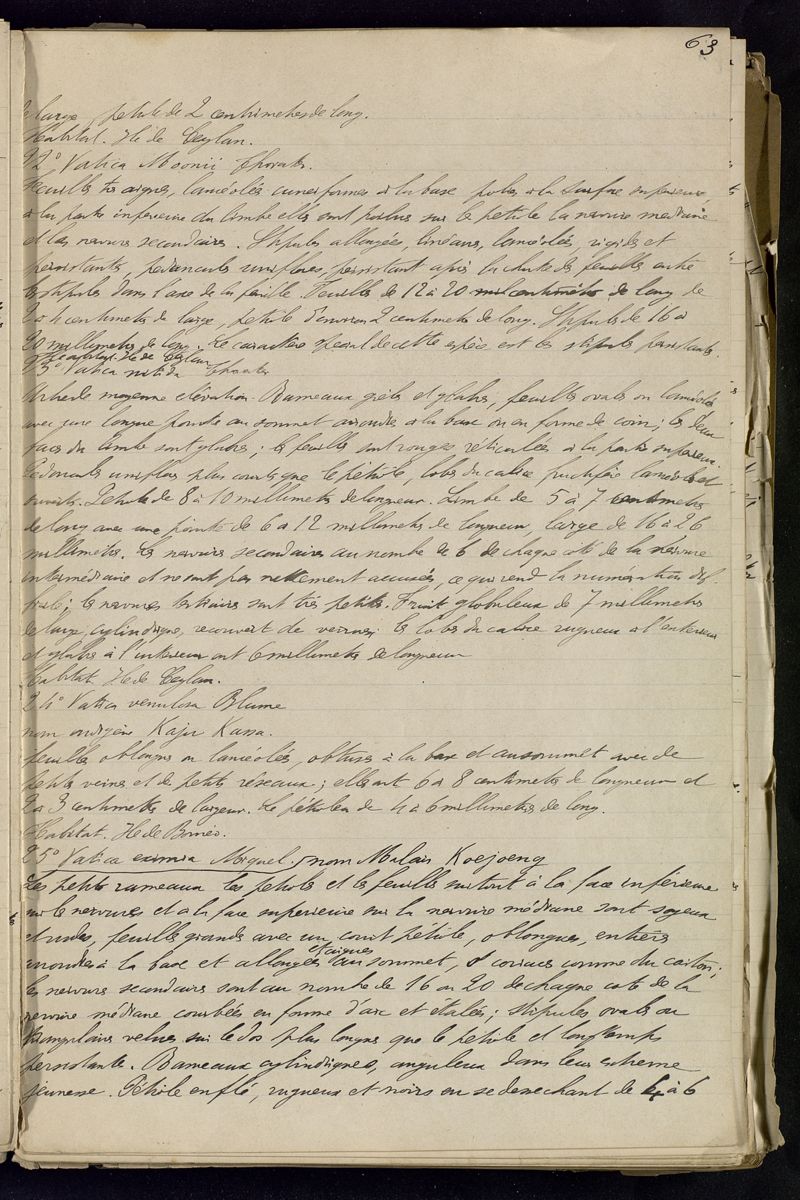 63
de large, pétiole de 2 centimetres de long.
Habitat. Ile de Ceylan.
22° Vatica Moonii Thwaites.
Feuilles très aigues, lancéolées cuneiformes à la base polies à la surface superieure,
à la partie inferieure du limbe elles sont poilues sur le petiole la nervure mediane
et les nervures secondaires. Stipules allongées, linéaires, lancéolées, rigides et
persistantes, pedoncules uniflores, persistant après la chute des feuilles entre
les stipules dans l'axe de la feuille. Feuilles de 12 à 20 centimètres de long de
à 4 centimetres de large, petiole d'environ 2 centimetres de long. Stipules de 16 à
20 millimetres de long. Le caractère special de cette espèce est les stipules persistantes.
Habitat. Ile de Ceylan
23° Vatica nitida Thwaites
Arbre de moyenne elévation. Rameaux grêles et glabres, feuilles ovales ou lancéolées
avec une longue pointe au sommet arrondies à la base ou en forme de coin; les deux
faces du limbe sont glabres; les feuilles sont rouges réticulées à la partie superieure.
Pedoncules uniflores plus courts que le pétiole, lobes du calice fructifère lancéolés et
ouverts. Petiole de 8 à 10 millimetres de longueur. Limbe de 5 à 7 centimetres
de long avec une pointe de 6 à 12 millimetres de longueur, large de 16 à 26
millimetres. Les nervures secondaires au nombre de 6 de chaque coté de la nervure
intermédiaire et ne sont pas nettement accusées, ce qui rend la numération difficile;
les nervures tertiaires sont très petites. Fruit globuleux de 7 millimetres
de large, cylindrique, recouvert de verrues; les lobes du calice rugueux à l'exterieur
et glabres à l'interieur ont 6 millimetres de longueur
Habitat. Ile de Ceylan.
24° Vatica venulosa Blume
nom indigène Kaju Kassa.
feuilles oblongues ou lancéolées, obtuses à la base et au sommet avec de
petites veines et de petits réseaux; elles ont 6 à 8 centimetres de longueur et
2 à 3 centimetres de largeur. Le pétiole a de 4 à 6 millimetres de long.
Habitat. Ile de Bornéo.
25° Vatica eximia Miquel. nom Malais Koejoeng
Les petits rameaux les petioles et les feuilles surtout à la face inférieure
sur les nervures et à la face superieure sur la nervure médiane sont soyeux
et rudes, feuilles grandes avec un court pétiole, oblongues, entières
arrondies à la base et allongées et aigues au sommet, coriaces comme du carton;
les nervures secondaires sont au nombre de 16 ou 20 de chaque coté de la
nervure médiane courbées en forme d'arc et étalées; stipules ovales ou
triangulaires velues sur le dos plus longues que le petiole et longtemps
persistantes. Rameaux cylindriques, anguleux dans leur extreme
jeunesse. Pétiole enflé, rugueux et noirs en se dessechant de 4 à 6